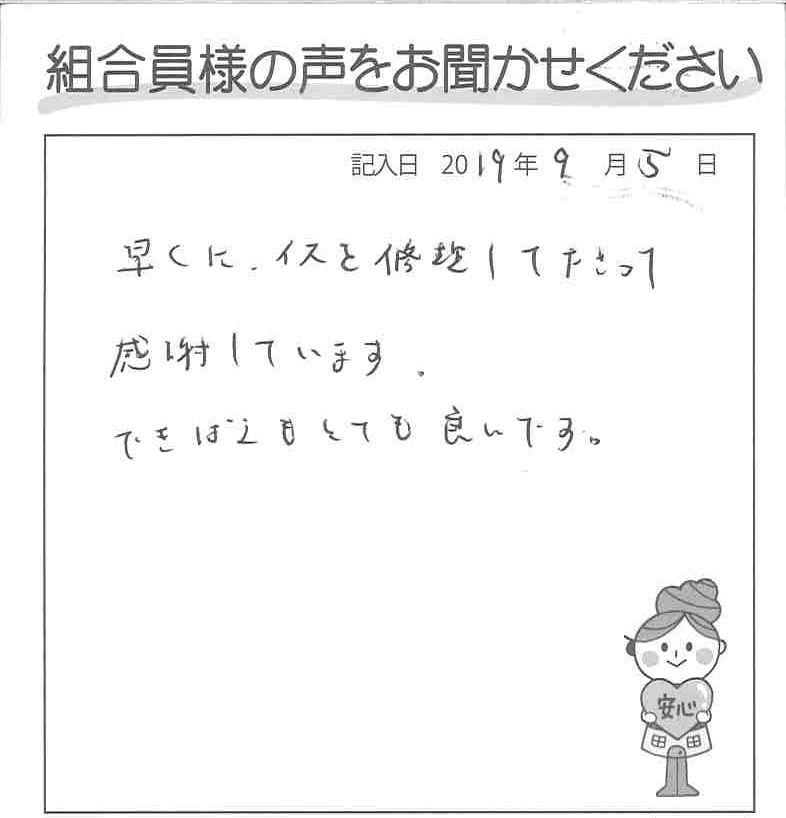 組合員様の声をお聞かせください
記入日 2019年9月5日
早くに、イスを修理して下さって
感謝しています。
できばえもとても良いです。
安心